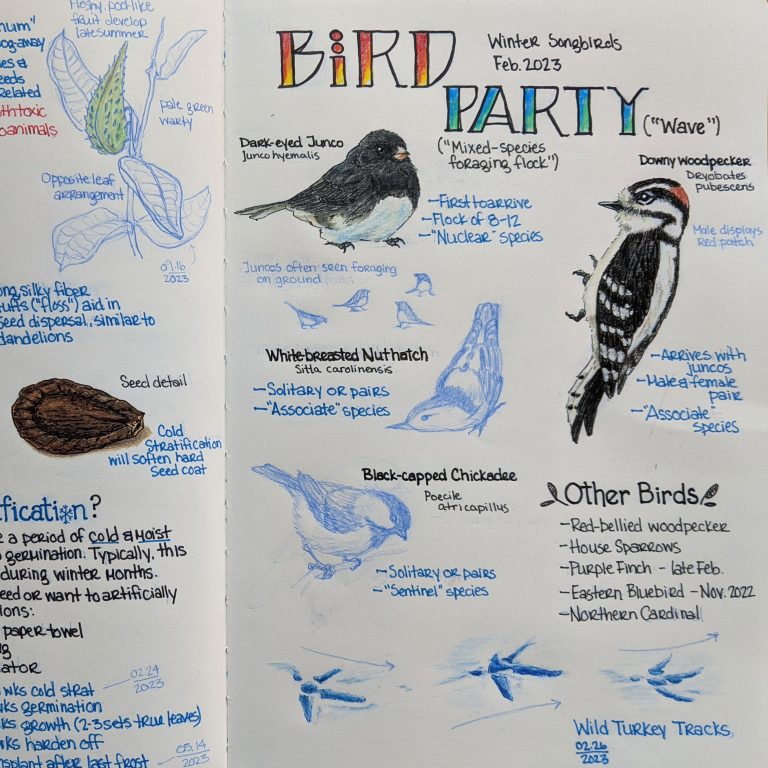 Fleshy, pod-like
fruit develop
late summer
num"
og away
es &
eeds
Related
th toxic
o animals
pale green
warty
Opposite leaf
arrangement
09.16
2023
ong, silky fiber
tufts ("floss") aid in
seed dispersal, similar to
dandelions
Seed detail
Cold
Stratification
will soften hard
Seed coat
ification?
e a period of cold & moist
germination. Typically, this
during winter months.
seed or want to artificially
ions:
paper towel
g
ator
wks cold strat
02.24
2023
wks germination
wks growth (2-3 sets true leaves)
wks harden off
nsplant after last frost
05.14
2023
BiRD
PARTY
Winter Songbirds
Feb. 2023
("Wave")
("Mixed-species
foraging flock")
Dark-eyed Junco
Junco hyemalis
-First to arrive
-Flock of 8-12
-"Nuclear" species
Juncos often seen foraging
on ground
Downy woodpecker
Dryobates
pubescens
Male displays
Red patch
-Arrives with
juncos
-Male & female
pair
-"Associate"
species
White-breasted Nuthatch
Sitta carolinensis
-Solitary or pairs
-"Associate" species
Black-capped Chickadee
Poecile
atricapillus
-Solitary or pairs
-"Sentinel" species
Other Birds
-Red-bellied woodpecker
-House Sparrows
-Purple Finch - late Feb.
-Eastern Bluebird - Nov. 2022
-Northern Cardinal
Wild Turkey Tracks
02.26
2023